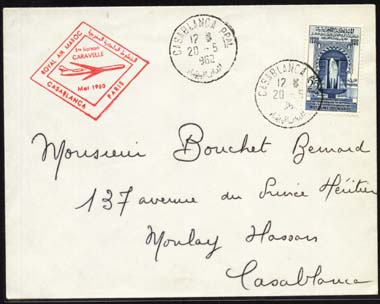 ROYAL AIR MAROC
1re liaison
CARAVELLE
Mai 1960
CASABLANCA
PARIS
CASABLANCA PPAL
12 H
20 - 5
1960
CASABLANCA
12 H
20 - 5
Monsieur Bouchet Bernard
137 avenue du Prince Héritier
Moulay Hassan
Casablanca